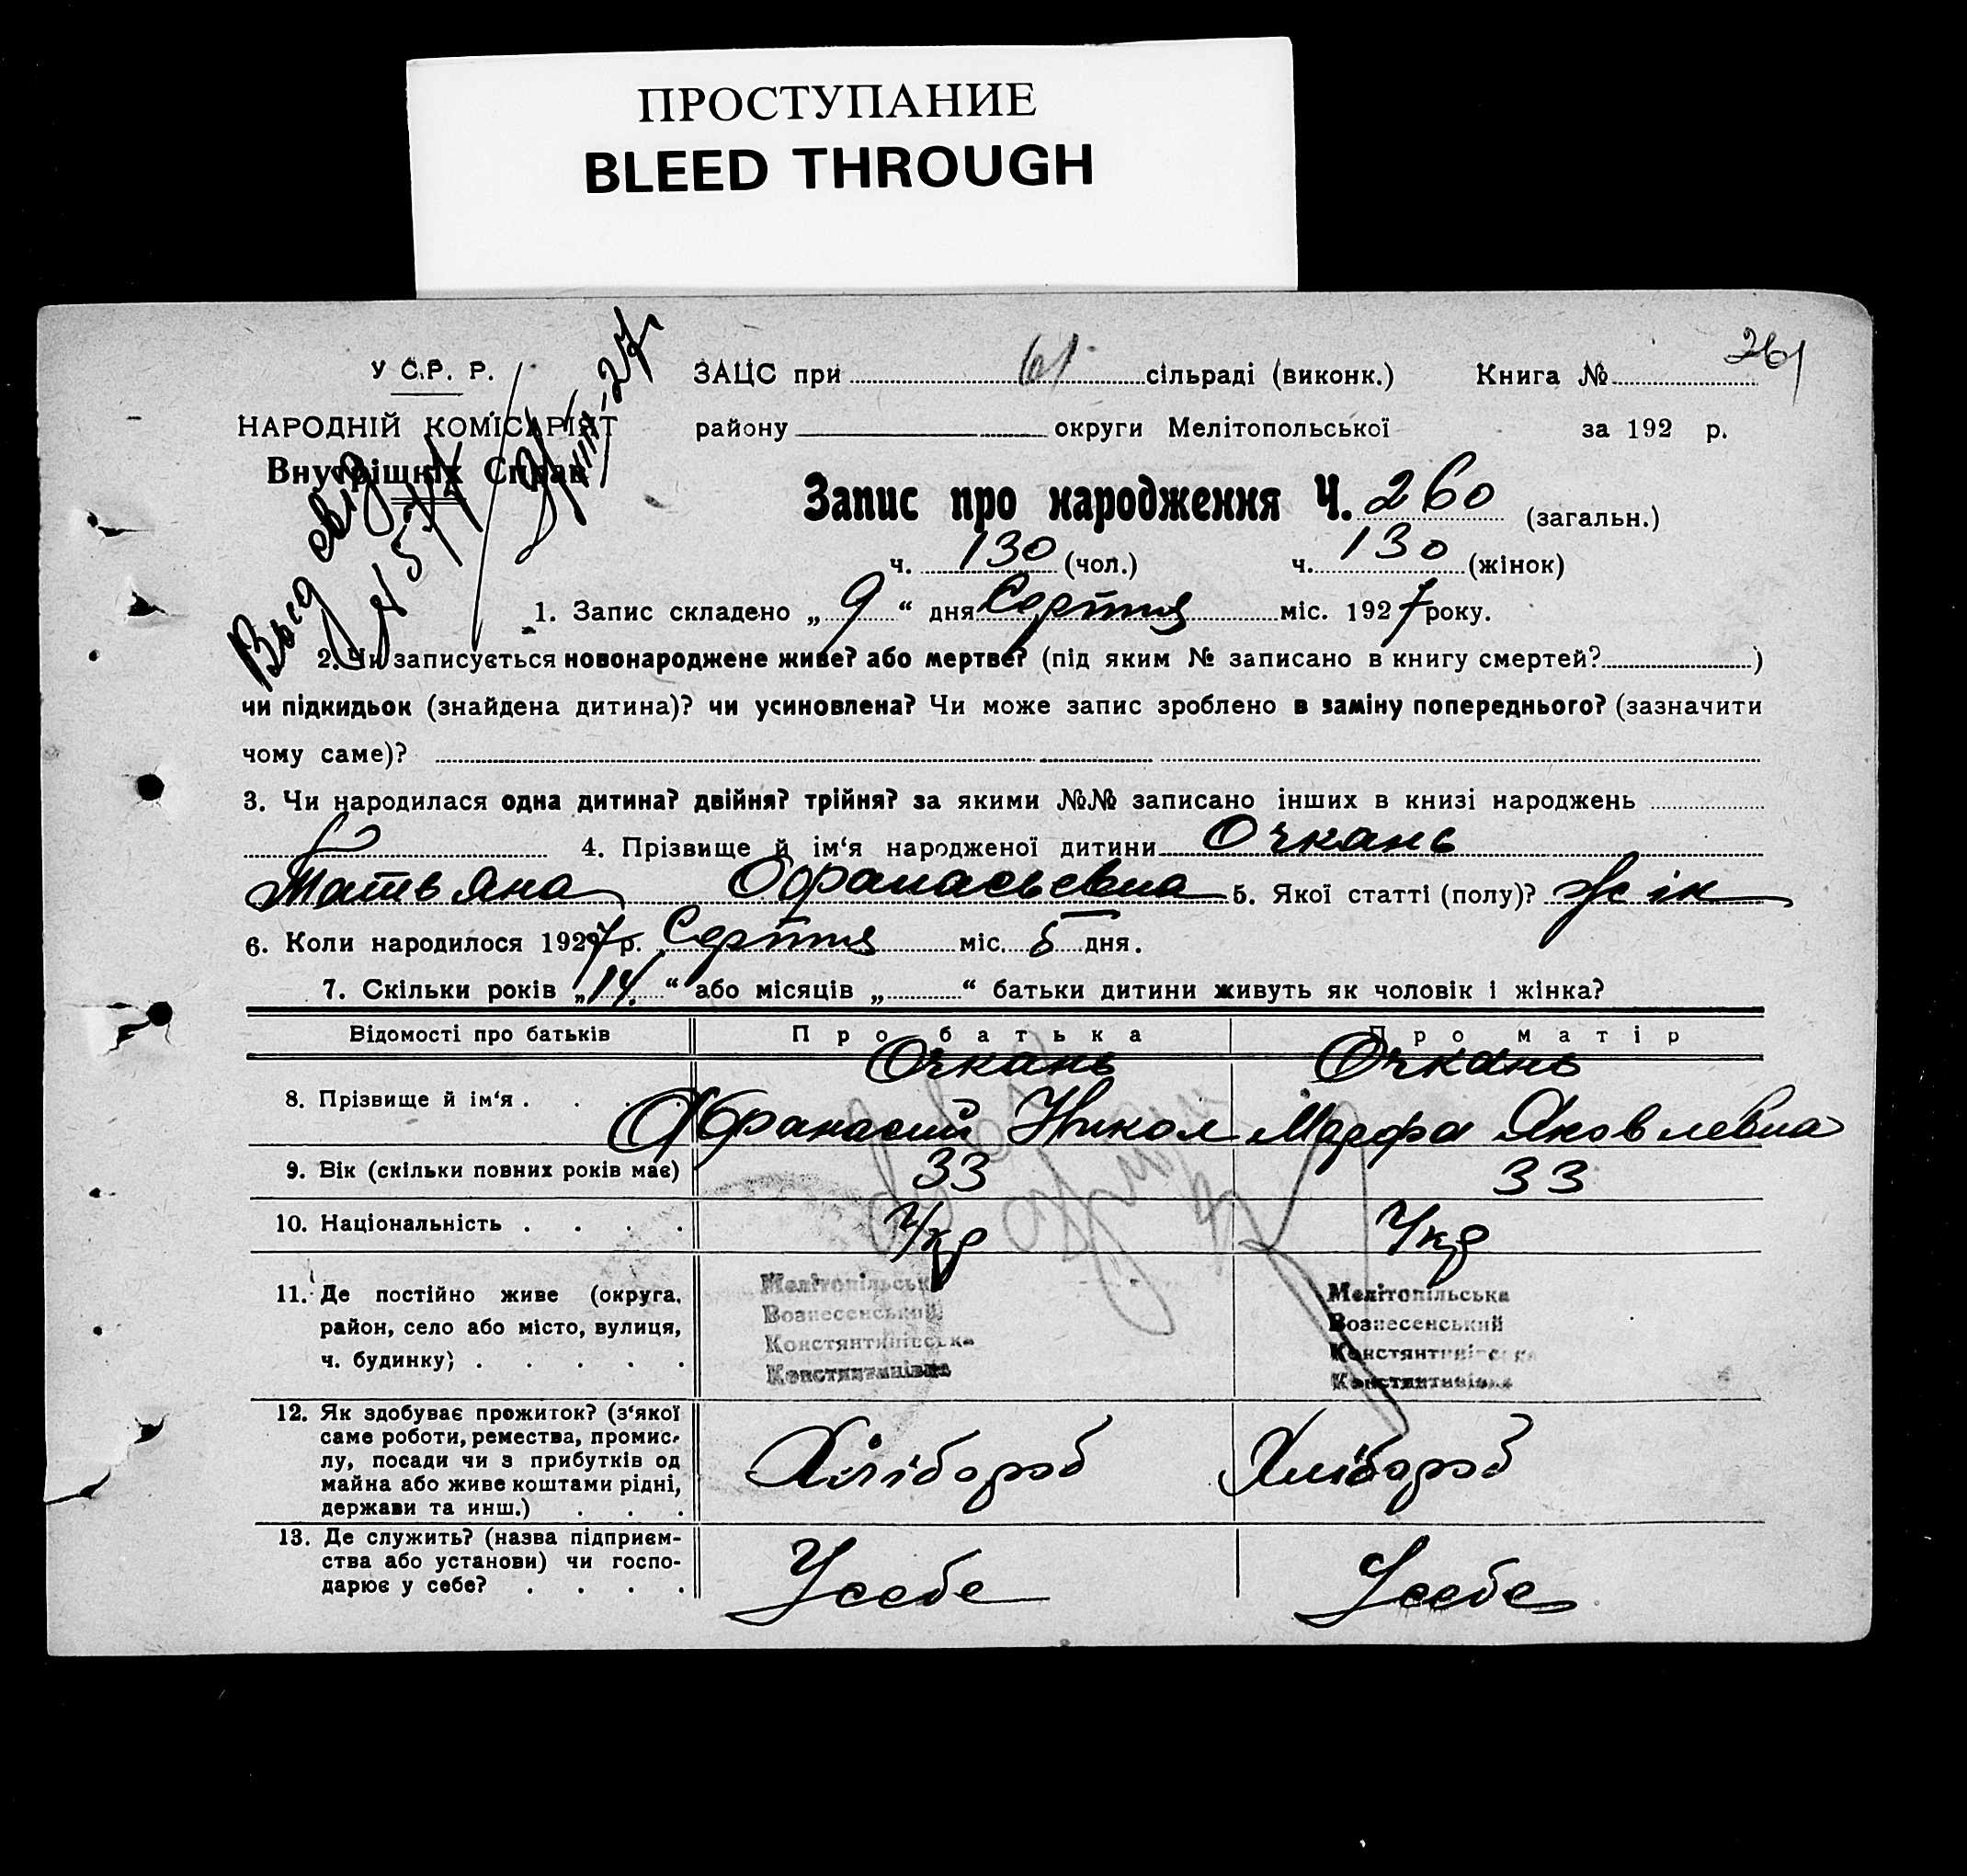 ПРОСТУПАНИЕ
BLEED THROUGH
261
У С.Р. Р.
ЗАЦС при 61 сільраді (виконк.) Книга №
НАРОДНІЙ КОМІСАРІЯТ
району округи Мелітопольської за 192 р.
Внутрішніх Справ
Запис про народження Ч. 260 (загальн.)
ч. 130 (чол.) ч. 130 (жінок)
1. Запис складено „ 9 “ дня Серпня міс. 1927 року.
2. Чи записується новонароджене живе? або мертве? (під яким № записано в книгу смертей? )
чи підкидьок (знайдена дитина)? чи усиновлена? Чи може запис зроблено в заміну попереднього? (зазначити
чому саме)?
3. Чи народилася одна дитина? двійня? трійня? за якими №№ записано інших в книзі народжень
4. Прізвище й ім‘я народженої дитини Очкань
Татьяна Офанасьевна 5. Якої статті (полу)? жін
6. Коли народилося 1927 р. Серпня міс. 5 дня.
7. Скільки років „ 14 “ або місяців „ “ батьки дитини живуть як чоловік і жінка?
Відомості про батьків Про батька Про матір
Очкань Очкань
8. Прізвище й ім‘я . . . . Офанасий Никол Марфа Яковлевна
9. Вік (скільки повних років має) 33 33
10. Національність . . . . Укр Укр
11. Де постійно живе (округа, Мелітопільська Мелітопільська
район, село або місто, вулиця, Вознесенський Вознесенський
ч. будинку) . . . . . Констянтинівська Констянтинівська
Констянтинівка Констянтинівка
12. Як здобуває прожиток? (з‘якої
саме роботи, ремества, промис-
лу, посади чи з прибутків од
майна або живе коштами рідні,
держави та инш.) . . .
Хлібороб Хлібороб
13. Де служить? (назва підприєм-
ства або установи) чи госпо-
дарює у себе? . . . .
Усебе Усебе